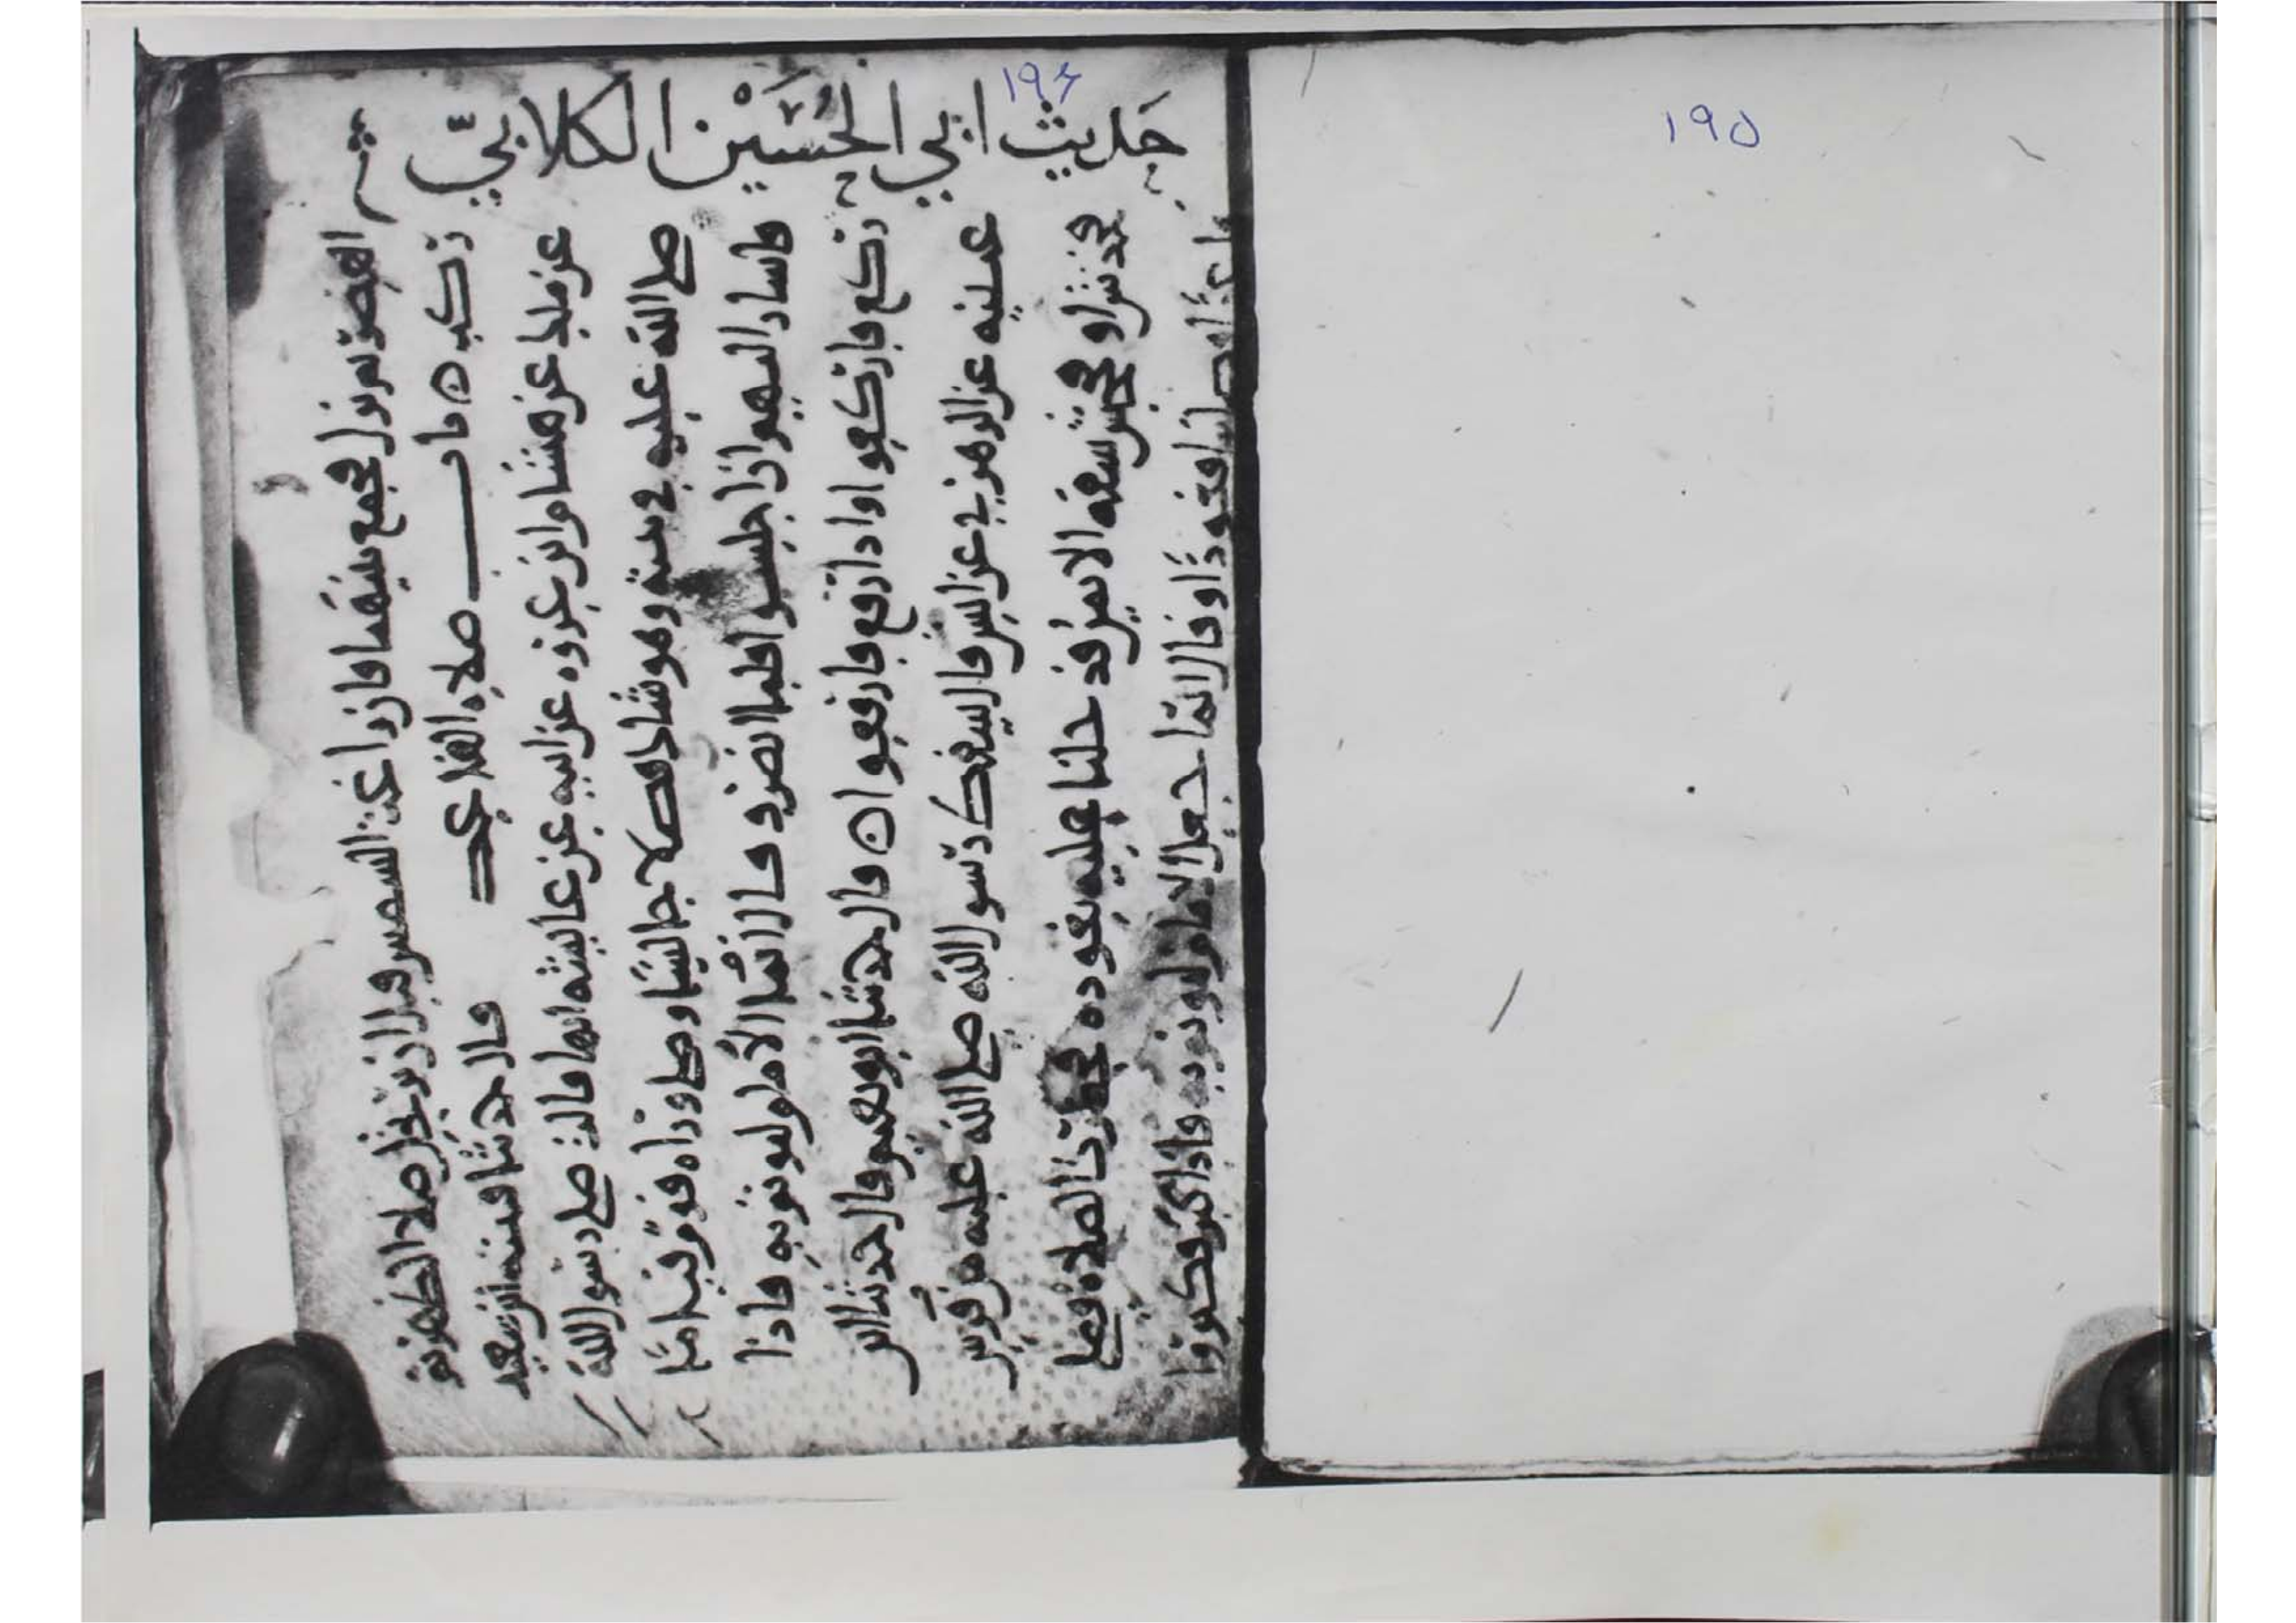 ١٩٥
١٩٦
حَديث ابي الحُسَيْن الكلابيّ
العصر ثم نزل فجمع بينهما فان زاغت الشمس قبل ان يرتحل صلا الظهر ثم
ركب ه باب صلاه القاعد قال حدثنا قتيبة ابن سعيد
عن ملك عن هشام ابن عروه عن ابيه عن عايشه انها قالت صلى رسول الله
صلى الله عليه في بيته وهو شاك فصلا جالسا وصلى وراه قوم قياما
فاشار اليهم ان اجلسوا فلما انصرف قال انما الامام ليوتم به فاذا
ركع فاركعوا واذا رفع فارفعوا ه قال حدثنا ابو نعيم قال حدثنا ابن
عيينه عن الزهري عن انس قال سقط رسول الله صلى الله عليه من فرس
فخدش او فجحش شقه الايمن فدخلنا عليه نعوده فحضرت الصلاه فصلى
قاعدا فصلينا قعودا وقال انما جعل الامام ليوتم به فاذا كبر فكبروا